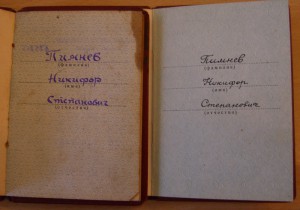 Пимнев
(фамилия)
Никифор
(имя)
Степанович
(отчество)
Пимнев
(фамилия)
Никифор
(имя)
Степанович
(отчество)